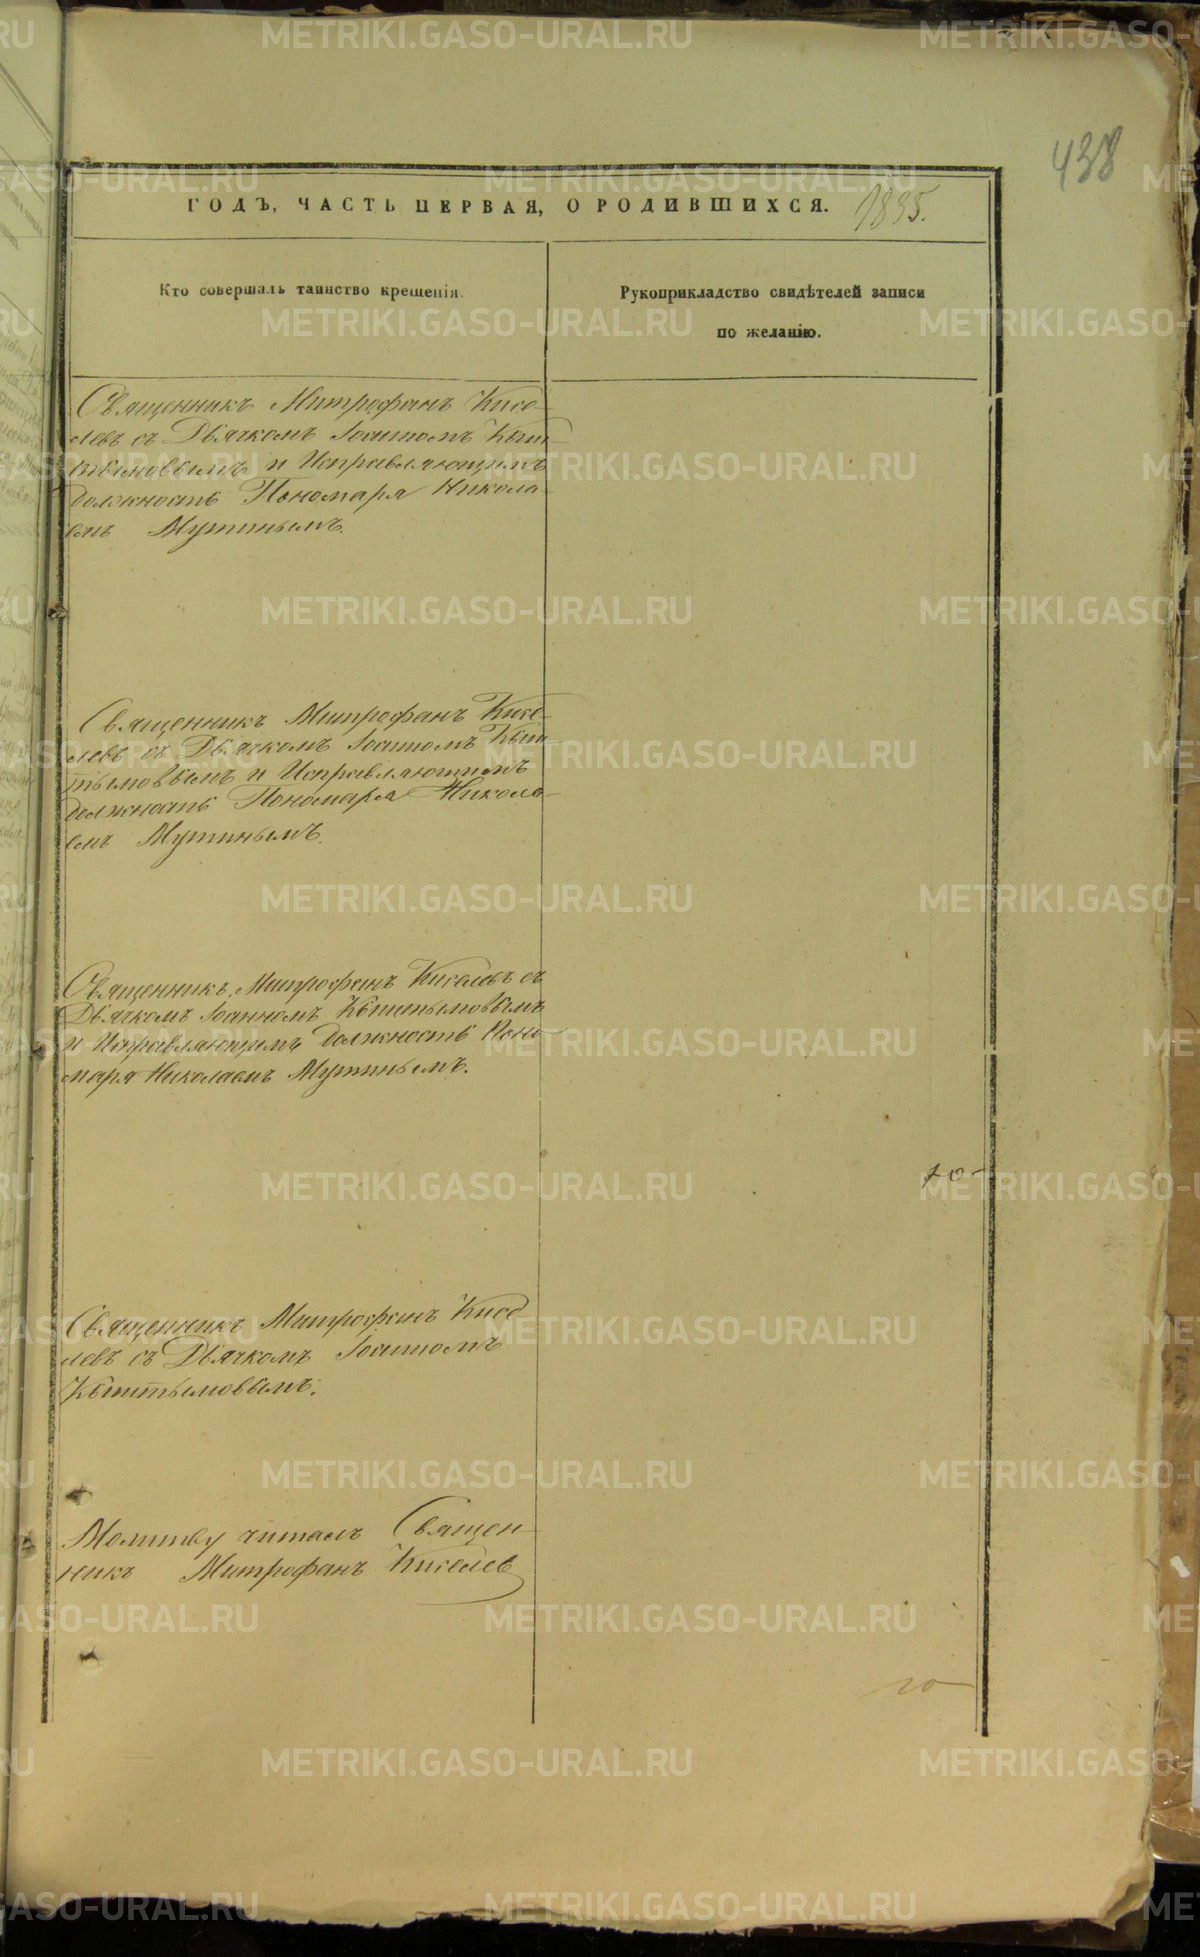 438
ГОДЪ, ЧАСТЬ ПЕРВАЯ, О РОДИВШИХСЯ. 1835.
Кто совершалъ таинство крещенія.
Рукоприкладство свидѣтелей записи
по желанію.
Священникъ Митрофанъ Кисе-
левъ съ Дьячкомъ Іоанномъ Кыш-
тымовымъ и Исправляющимъ
должность Пономаря Никола-
емъ Мутинымъ.
Священникъ Митрофанъ Кисе-
левъ съ Дьячкомъ Іоанномъ Кыш-
тымовымъ и Исправляющимъ
должность Пономаря Никола-
емъ Мутинымъ.
Священникъ Митрофанъ Киселевъ съ
Дьячкомъ Іоанномъ Кыштымовымъ
и Исправляющимъ должность Поно-
маря Николаемъ Мутинымъ.
10-
Священникъ Митрофанъ Кисе
левъ съ Дьячкомъ Іоанномъ
Кыштымовымъ.
Молитву читалъ Священ-
никъ Митрофанъ Киселев
METRIKI.GASO-URAL.RU